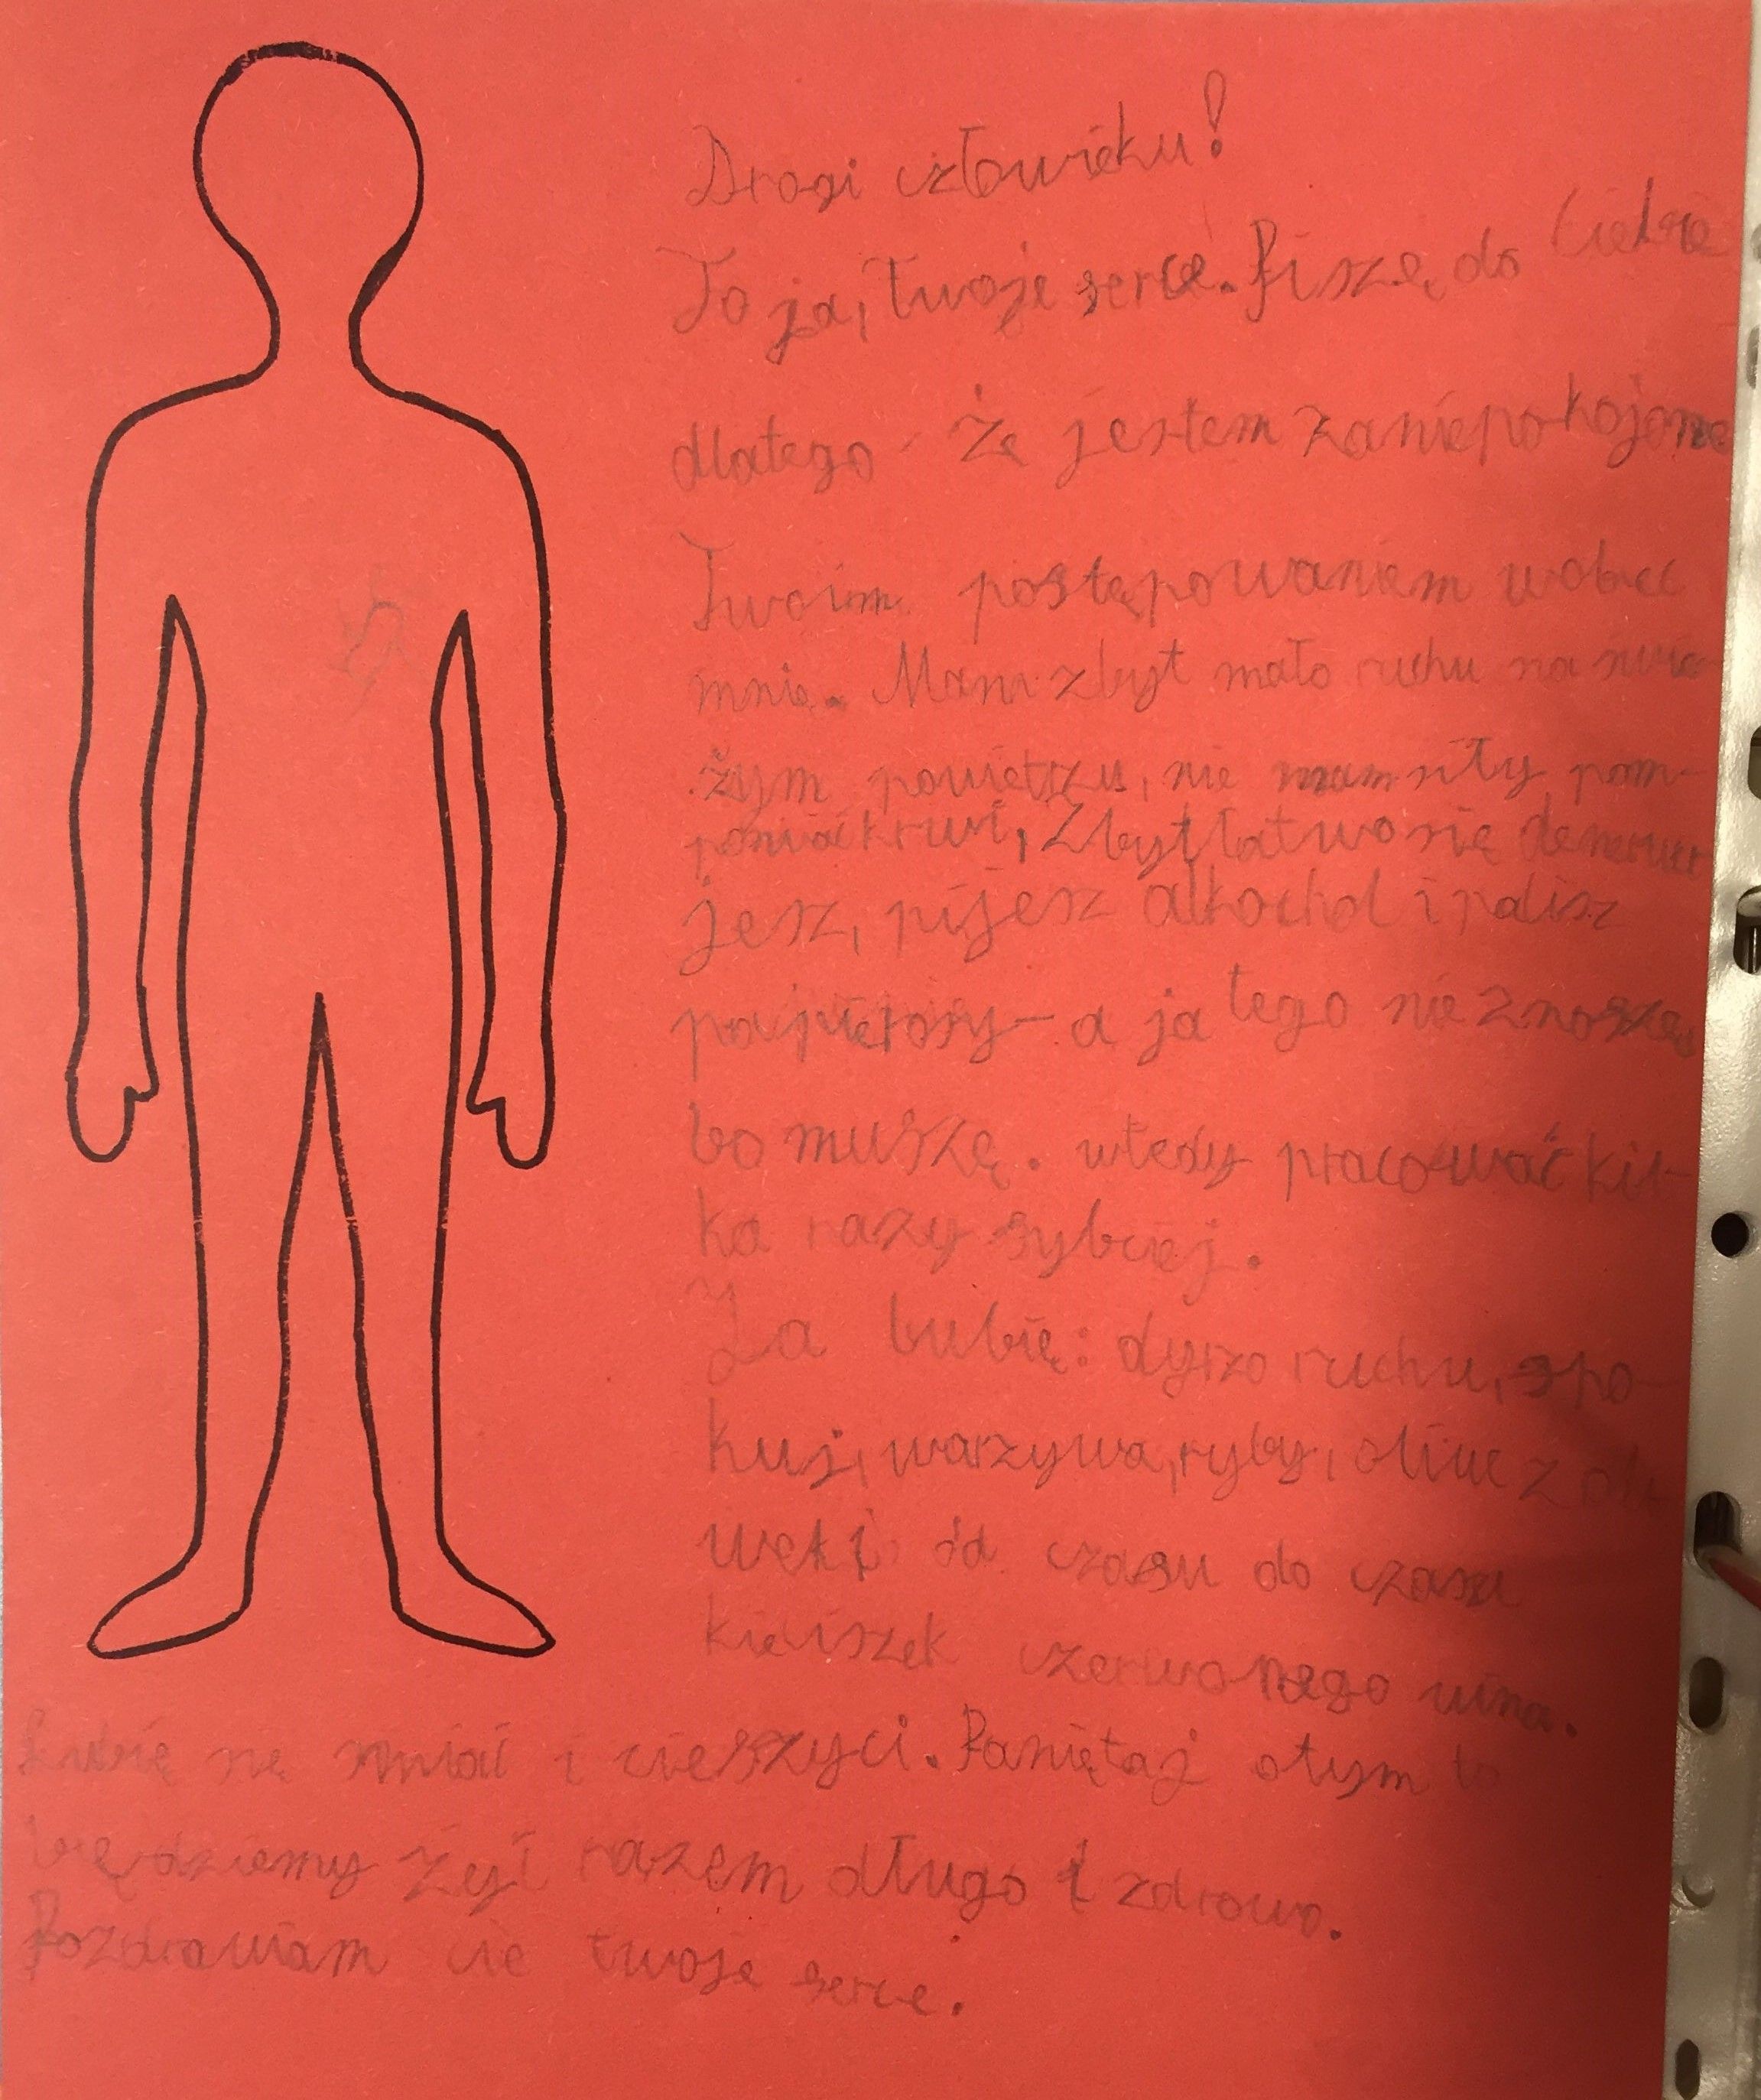 Drogi człowieku!
To ja, Twoje serce. Piszę do Ciebie
dlatego że jestem zaniepokojone
Twoim postępowaniem wobec
mnie. Mam zbyt mało ruchu na świe-
żym powietrzu, nie mam siły pom-
pować krwi, Zbyt łatwo się denerwu
jesz, pijesz alkochol i palisz
papierosy - a ja tego nie znoszę,
bo muszę. wtedy pracować kil-
ka razy sybciej.
Ja lubię: dyrzo ruchu, spo-
kuj, warzywa, ryby, oliwe z oli
wek i od czasu do czasu
kieliszek czerwonego wina.
Lubię się śmiać i cieszyci. Pamiętaj otym to
będziemy żyć razem długo i zdrowo.
Pozdrawiam cie twoje serce.